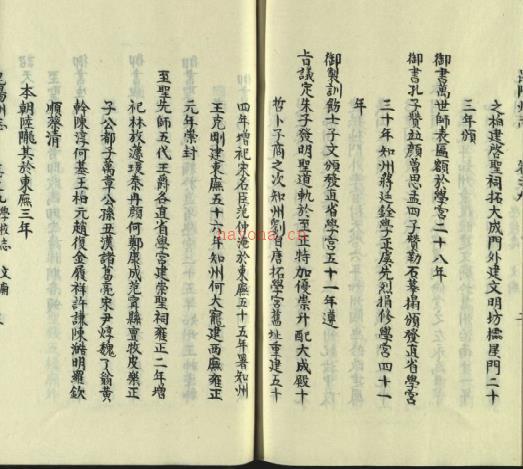 之楠建啓聖祠拓大成門外建文明坊櫺星門二十
三年頒
御書萬世師表匾額於學宮二十八年
御書孔子贊并顏曾思孟四子贊勒石摹搨頒發直省學宮
三十年知州蔣廷銓學正虞先烈捐修學宮四十一
年
御製訓飭士子文頒發直省學宮五十一年遵
旨議定朱子發明聖道軌於至正特加優崇升配大成殿十
哲卜子商之次知州劉自唐拓學宮舊址重建五十
四年增祀宋名臣范仲淹於東廡五十五年署知州
王克剛建東廡五十六年知州何大寵建西廡雍正
元年崇封
至聖先師五代王爵各直省學宮建崇聖祠雍正二年增
祀林放蘧瑗秦冉顏何鄭康成范甯縣亶牧皮樂正
子公都子萬章公孫丑漢諸葛亮宋尹焞魏了翁黃
幹陳淳何基王柏元趙復金履祥許謙陳澔明羅欽
順蔡清
本朝陸隴其於東廡三年
nayona.cn